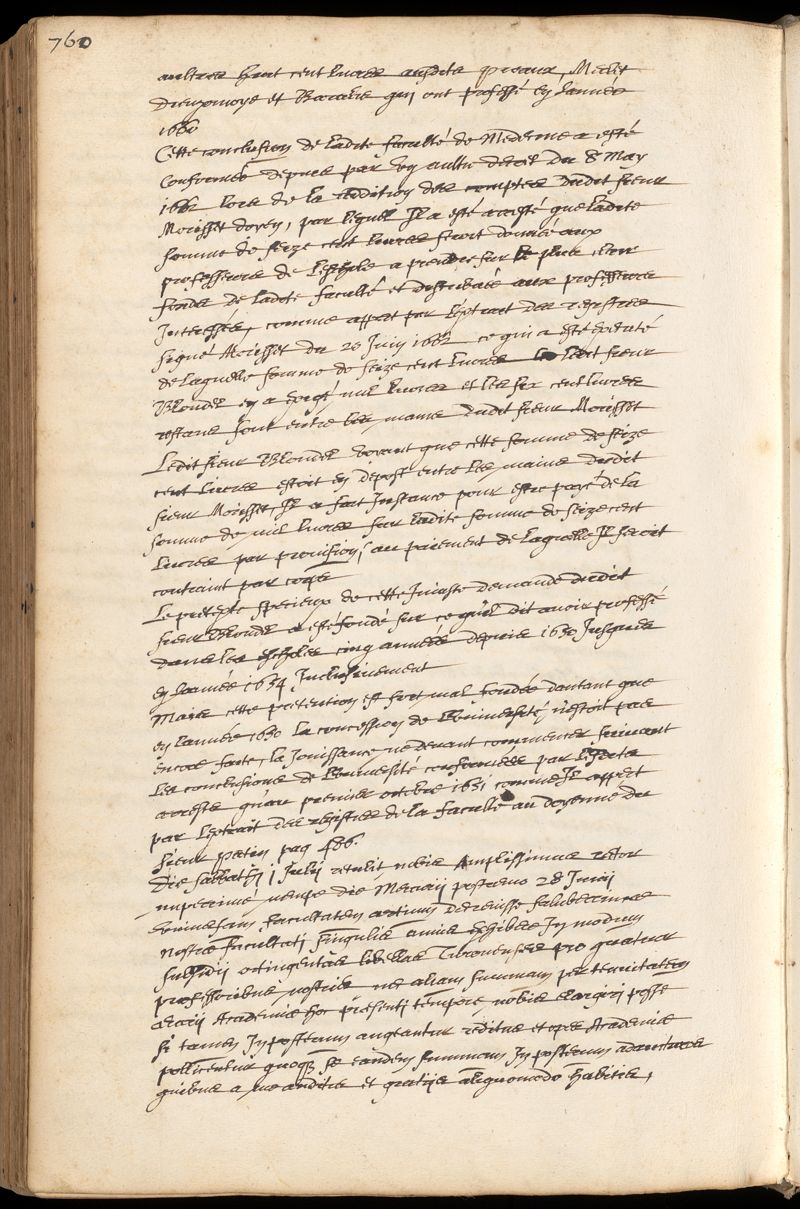 760
aultres huit cent livres ausdits preaux, Medit
Dieuxivoye et Baralis qui ont professé en l'année
1660
Cette conclusion de ladite faculté de Medecine a esté
confirmée depuis par un aultre decret du 8 May
1662 lors de la reddition des comptes dudit sieur
Morisset doyen, par lequel Il a esté arresté que ladite
somme de seize cent livres seroit donnée aux
professeurs de l'eschole a prendre sur le plus clair
fonds de ladite faculté et distribuée aux professeurs
Interessés, comme appert par l'extraict des registres
signé Morisset du 20 Juin 1662 ce qui a esté executé
de laquelle somme de seize cent livres ledit sieur
Blondel en a exigé mil livres et les six cent livres
restans sont entre les mains dudit sieur Morisset
Ledit sieur Blondel voyant que cette somme de seize
cent livres estoit en depost entre les mains dudit
sieur Morisset, Il a fait Instance pour estre payé de la
somme de mil livres sur ladite somme de seize cent
livres par provision, au paiement de laquelle Il seroit
contraint par corps
Le pretexte specieux de cette Iniuste demande dudit
sieur Blondel a esté fondé sur ce qu'il dit avoir professé
dans les escholes cinq années depuis 1650 Jusques
en l'année 1654 Inclusivement
Mais cette pretention est fort mal fondée dautant que
en l'année 1650 la concession de l'Université n'estoit pas
encore faite, la Jouissance ne devant commencer suivant
les conclusions de l'Université confirmées par lesdits
arrests qu'au premier octobre 1651 comme Il appert
par l'extrait des registres de la faculté au doyenné du
sieur patin pag 486.
Die sabbathi 1 Julii retulit nobis Amplissimus rector
nuperrime, nempe die Mercurii postremo 28 Junii
universam facultatem artium decrevisse saluberrimae
nostrae facultati singulis annis exhibere In modum
subsidii octingentas libellas Turonenses pro quatuor
professoribus nostris nec aliam summam per tenuitatem
aerarii Academiae hoc presenti tempore nobis elargiri posse
si tamen In posterum augeantur reditus et opes Academiae
pollicentur quoque se eandem summam In posterum adaucturos
quibus a me auditis et gratiis aliquomodo habitis,